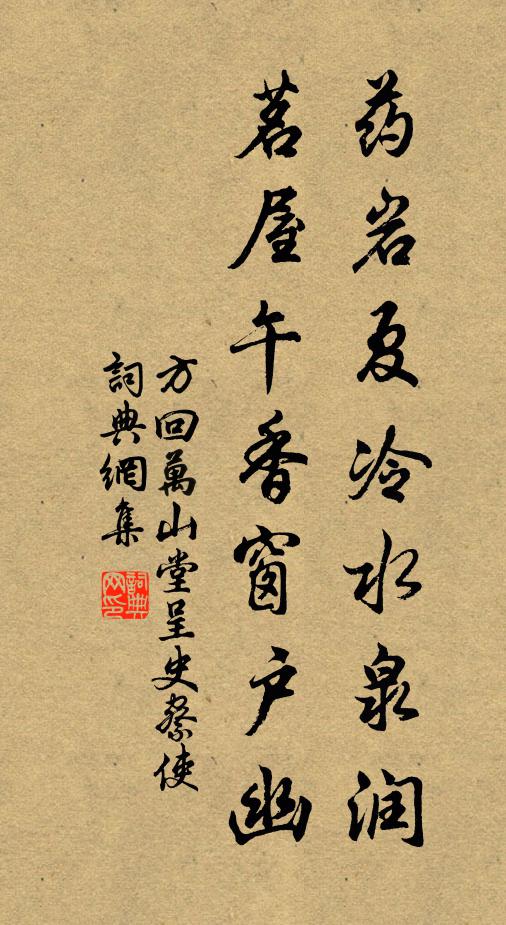 药岩夏冷水泉润
茗屋午香窗户幽
方回萬山堂呈史祭使
詞典網集
詞典网印